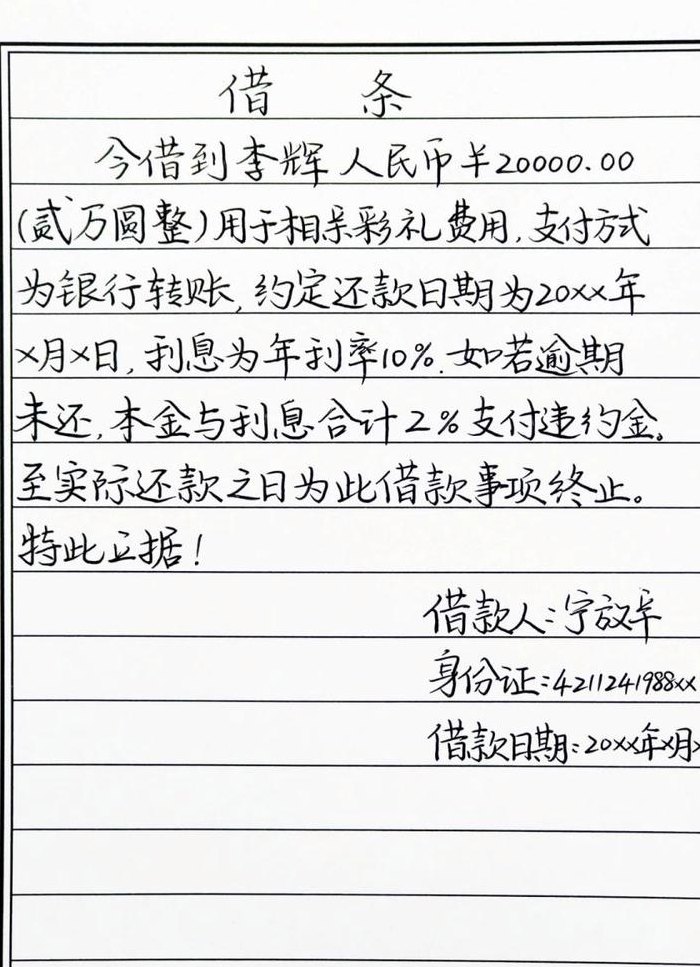 借 条
今借到李辉人民币¥20000.00
(贰万圆整)用于相亲彩礼费用,支付方式
为银行转账,约定还款日期为20xx年
x月x日,利息为年利率10%.如若逾期
未还,本金与利息合计2%支付违约金。
至实际还款之日为此借款事项终止。
特此立据!
借款人:宁放
身份证:4211241988xx
借款日期:20xx年x月x